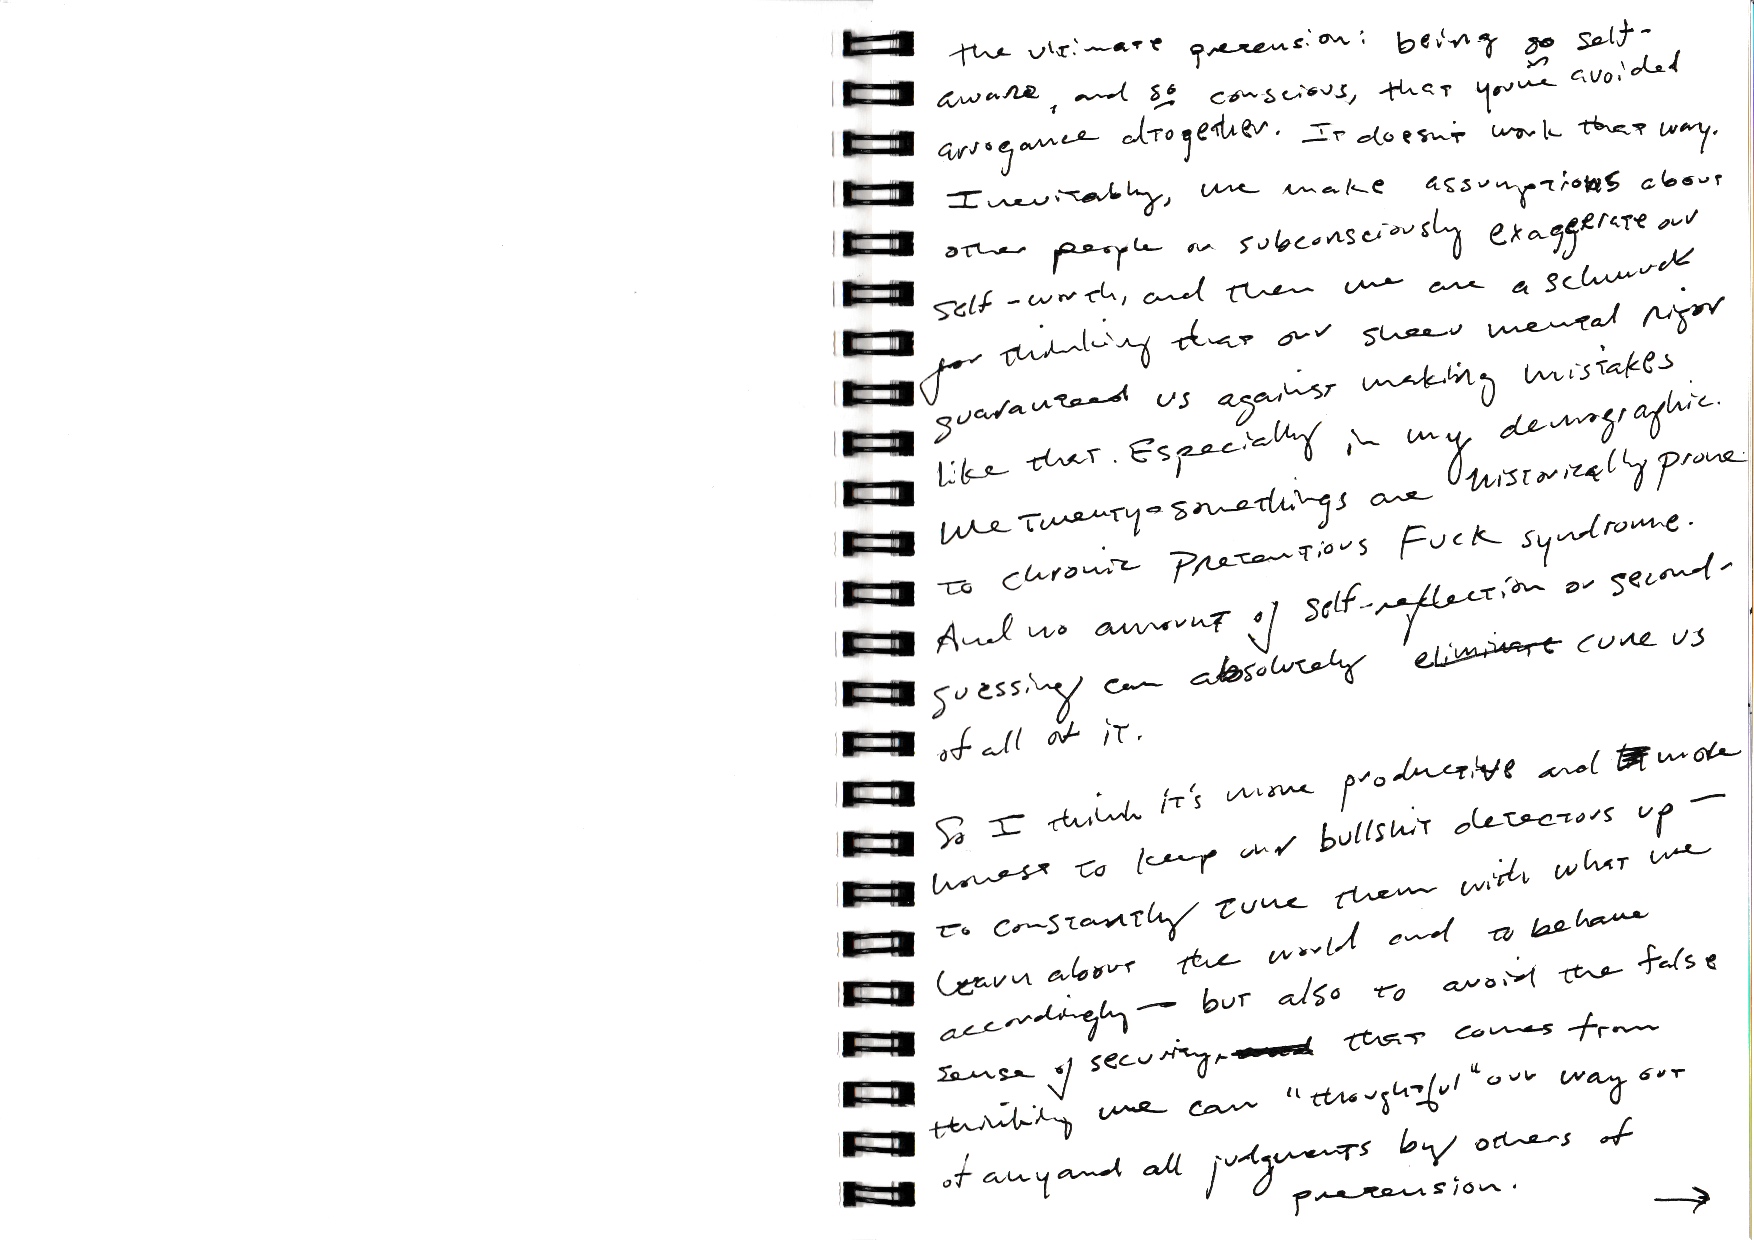 the ultimate pretension: being so self-
aware, and so conscious, that you've avoided
arrogance altogether. It doesn't work that way.
Inevitably, we make assumptions about
other people or subconsciously exaggerate our
self-worth, and then we are a schmuck
for thinking that our sheer mental rigor
guaranteed us against making mistakes
like that. Especially in my demographic.
We twenty-somethings are historically prone
to chronic Pretentious Fuck syndrome.
And no amount of self-reflection or second-
guessing can absolutely eliminate cure us
of all of it.
So I think it's more productive and more
honest to keep our bullshit detectors up —
to constantly tune them with what we
learn about the world and to behave
accordingly — but also to avoid the false
sense of security, that comes from
thinking we can "thoughtful" our way out
of any and all judgments by others of
pretension.
→